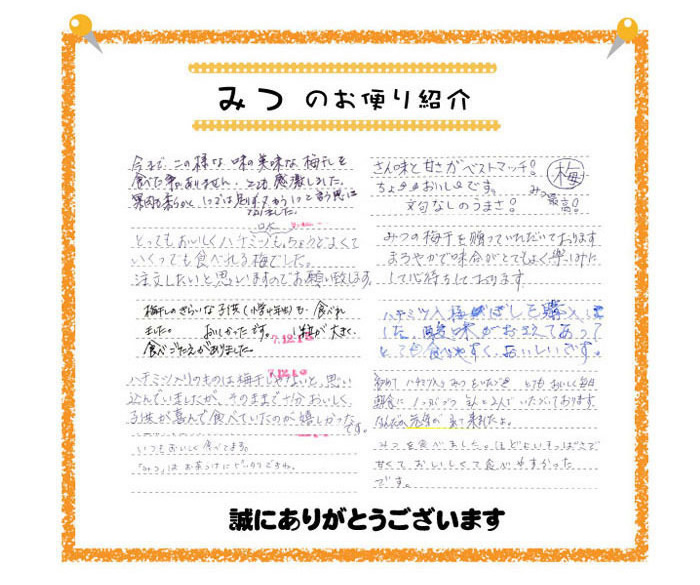 みつ のお便り紹介
今まで この様な 味の美味な 梅干しを
食べた事がありません。とても感激しました。
果肉も柔らかく 1つでは足りず
なりました。
とってもおいしくハチミツも、ちょうどよくて
いくつでも食べれる梅でした。
注文したいと思いますのでお願い致します
梅干しのきらいな子供(小学4年生)も 食べれ
ました。 おいしかったです。 1粒が大きく、
7.12.10
食べごたえがありました。
7.12.10
ハチミツ入りのものは梅干しじゃないと、思い
込んでいましたが、そのままで十分おいしく、
子供が喜んで食べていたのが嬉しかった
です。
いつもおいしく食べてます。
「みつ」は お茶づけに ピッタリですね。
さん味と甘さがベストマッチ!
梅
ちょーおいしーです。
みつ最高!
文句なしのうまさ!
みつの梅干を贈っていただいております
まろやかで味合がとてもよく楽しみに
して心待ちしております
ハチミツ入梅ぼしを購入
した。酸味がおさえてあって
とても食べやすく、おいしいです。
初めて ハチミツ入り みつをいただき とてもおいしく毎日
朝食に 1人で いただいております。
なんだか元気が 出て来ましたよ。
みつを食べました。ほどよいすっぱさで
甘くて おいしくて食べやすかった
です。
誠にありがとうございます